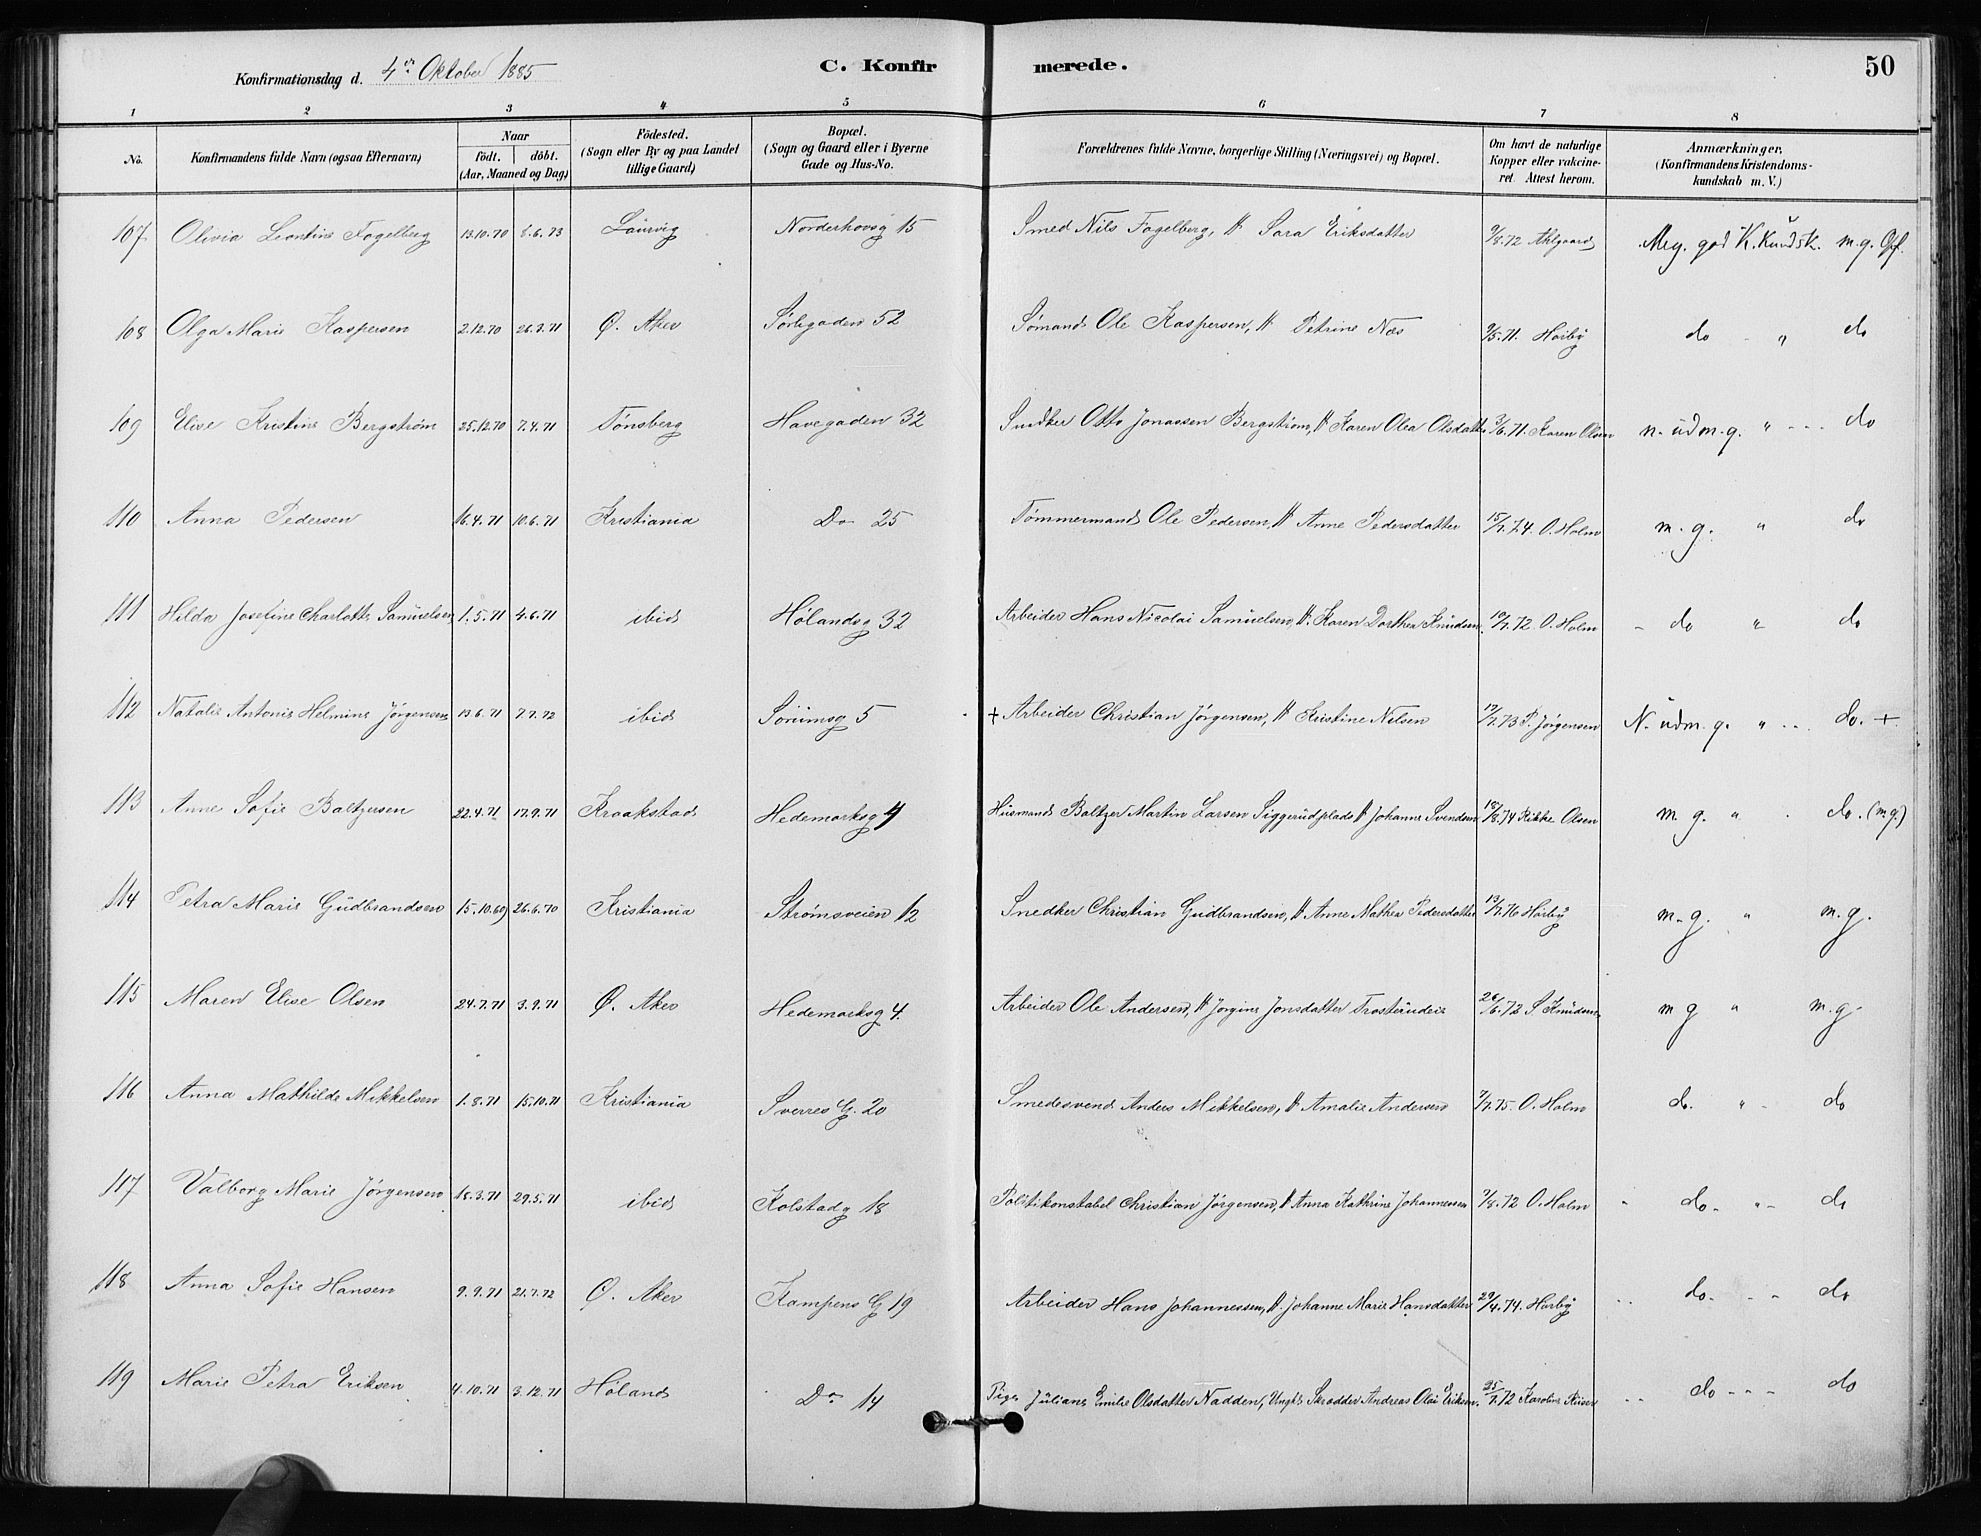 Konfirmationsdag d. 4de Oktober 1885 C. Konfirmerede. 50
1 2 3 4 5 6 7 8
No. Konfirmandens fulde Navn (ogsaa Efternavn) Naar födt. döbt. (Aar, Maaned og Dag) Födested. (Sogn eller By og paa Landet tillige Gaard) Bopæl. (Sogn og Gaard eller i Byerne Gade og Hus-No. Forældrenes fulde Navne, borgerlige Stilling (Næringsvei) og Bopæl. Om havt de naturlige Kopper eller vakcineret. Attest herom. Anmærkninger. (Konfirmandens Kristendomskundskab m. V.)
107 Olivia Leontine Fagelberg 13.10.70 8.6.73 Laurvig Norderhovsg 15 Smed Nils Fagelberg, H Sara Eriksdatter 9/8.72 Ahlgaard Meg. god K. Kundsk. m.g. Gf.
108 Olga Marie Kaspersen 2.12.70 26.3.71 Ø. Aker Sørligaden 52 Sømand Ole Kaspersen, H Petrine Næs 9/5.71. Hørbÿ do " do
109 Elise Kristine Bergstrøm 25.12.70 7.4.71 Tønsberg Havegaden 32 Snedker Otto Jonassen Bergstrøm, H Karen Olea Olsdatter 3/6.71. Karen Olsen n. udm.g. " do
110 Anna Pedersen 16.4.71 10.6.71 Kristiania Do 25 Tømmermand Ole Pedersen, H Anne Pedersdatter 15/7.74. O. Holm m.g. " do
111 Hilda Josefine Charlotte Samuelsen 1.5.71 4.6.71 ibid Hølandsg 32 Arbeider Hans Nicolai Samuelsen, H. Karen Dorthea Knudsen 10/7.72. O. Holm - do " do
112 Natalie Antonie Helmine Jørgensen 13.6.71 7.7.72 ibid Sørumsg 5 + Arbeider Christian Jørgensen, H Kristine Nilsen 17/7.73 P. Jørgensen N. udm.g. " do. +
113 Anne Sofie Baltzersen 22.4.71 17.9.71 Kraakstad Hedemarksg 4 Husmand Baltzer Martin Larsen Siggerudplads H Johanne Svendsen 18/8.74 Rikke Olsen m.g. " do. (m.g.)
114 Petra Marie Gudbrandsen 15.10.69) 26.6.70 Kristiania Strømsveien 12 Snedker Christian Gudbrandsen, H Anne Mathea Pedersdatter 13/7.76 Hørbÿ m.g. " m.g.
115 Maren Elise Olsen 24.7.71 3.9.71 Ø. Aker Hedemarksg 4. Arbeider Ole Andersen, H Jørgine Jonsdatter Trosterudeie 26/6.72 S Knudsen m g " m.g.
116 Anna Mathilde Mikkelsen 1.8.71 15.10.71 Kristiania Sverres G. 20 Smedesvend Anders Mikkelsen, H Amalie Andersen 7/7.75. O. Holm do. " do
117 Valborg Marie Jørgensen 18.3.71 29.5.71 ibid Kolstadg 18 Politikonstabel Christian Jørgensen, H Anna Kathrine Johannessen 7/8.72 O. Holm do. " do
118 Anna Sofie Hansen 9.9.71 21.7.72 Ø. Aker Kampens G 19 Arbeider Hans Johannessen, H. Johanne Marie Hansdatter 29/4.74. Hørbÿ do. - do
119 Marie Petra Eriksen 4.10.71 3.12.71 Høland Do 14 Pige Juliane Emilie Olsdatter Nadden, Ungk. Skrædder Andreas Olai Eriksen. 25/7.72 Karoline do - - - do